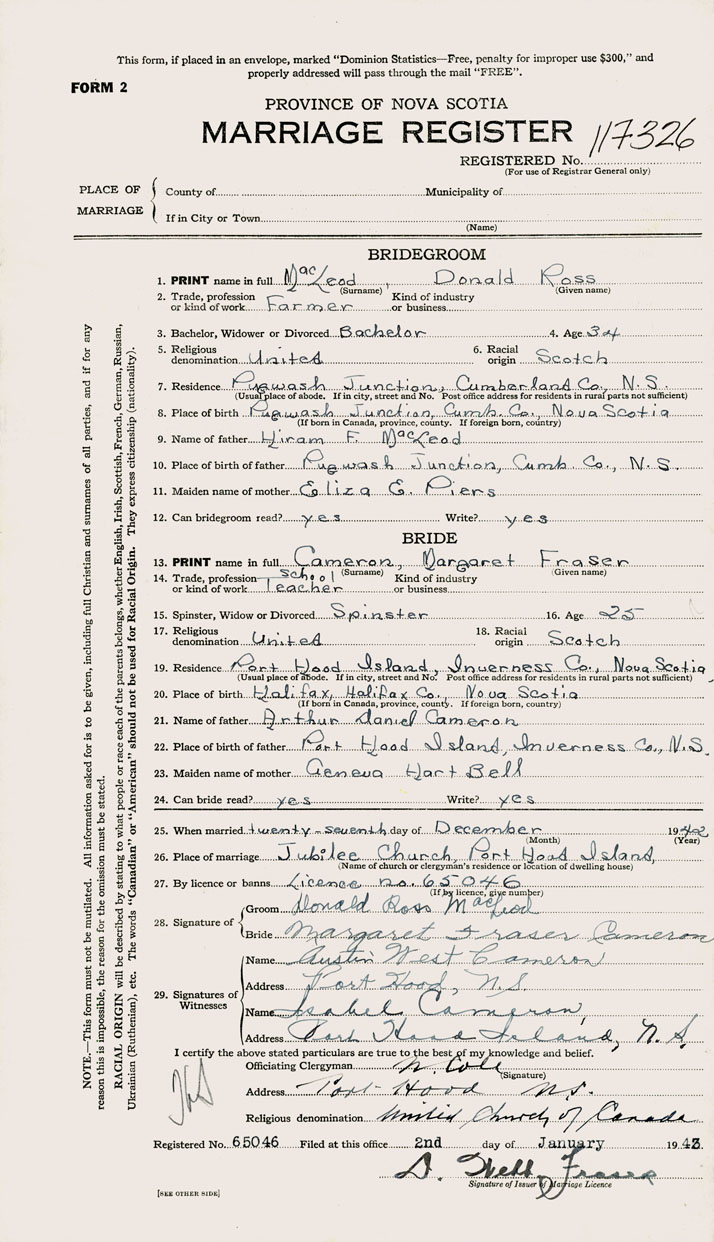 This form, if placed in an envelope, marked "Dominion Statistics—Free, penalty for improper use $300," and
properly addressed will pass through the mail "FREE".
FORM 2
PROVINCE OF NOVA SCOTIA
MARRIAGE REGISTER 117326
REGISTERED No.
(For use of Registrar General only)
PLACE OF MARRIAGE
County of Municipality of
If in City or Town
(Name)
BRIDEGROOM
1. PRINT name in full MacLeod, Donald Ross
(Surname) (Given name)
2. Trade, profession or kind of work Farmer Kind of industry or business
3. Bachelor, Widower or Divorced Bachelor 4. Age 34
5. Religious denomination United 6. Racial origin Scotch
7. Residence Pugwash Junction, Cumberland Co., N.S.
(Usual place of abode. If in city, street and No. Post office address for residents in rural parts not sufficient)
8. Place of birth Pugwash Junction, Cumb. Co., Nova Scotia
(If born in Canada, province, county. If foreign born, country)
9. Name of father Hiram F. MacLeod
10. Place of birth of father Pugwash Junction, Cumb. Co., N.S.
11. Maiden name of mother Eliza E. Piers
12. Can bridegroom read? yes Write? yes
BRIDE
13. PRINT name in full Cameron, Margaret Fraser
(Surname) (Given name)
14. Trade, profession or kind of work School Teacher Kind of industry or business
15. Spinster, Widow or Divorced Spinster 16. Age 25
17. Religious denomination United 18. Racial origin Scotch
19. Residence Port Hood Island, Inverness Co., Nova Scotia,
(Usual place of abode. If in city, street and No. Post office address for residents in rural parts not sufficient)
20. Place of birth Halifax, Halifax Co., Nova Scotia
(If born in Canada, province, county. If foreign born, country)
21. Name of father Arthur Daniel Cameron
22. Place of birth of father Port Hood Island, Inverness Co., N.S.
23. Maiden name of mother Geneva Hart Bell
24. Can bride read? yes Write? yes
25. When married twenty-seventh day of December 1942
(Month) (Year)
26. Place of marriage Jubilee Church, Port Hood Island,
(Name of church or clergyman's residence or location of dwelling house)
27. By licence or banns Licence no. 65046
(If by licence, give number)
28. Signature of
Groom Donald Ross MacLeod
Bride Margaret Fraser Cameron
29. Signatures of Witnesses
Name Austin West Cameron
Address Port Hood, N.S.
Name Isabel Cameron,
Address Port Hood Island, N.S.
I certify the above stated particulars are true to the best of my knowledge and belief.
Officiating Clergyman N. Cole
(Signature)
Address Port Hood N.S.
Religious denomination United Church of Canada
Registered No. 65046 Filed at this office 2nd day of January 1943
D. Webb Fraser
Signature of Issuer of Marriage Licence
[SEE OTHER SIDE]
NOTE.—This form must not be mutilated. All information asked for is to be given, including full Christian and surnames of all parties, and if for any
reason this is impossible, the reason for the omission must be stated.
RACIAL ORIGIN will be described by stating to what people or race each of the parents belongs, whether English, Irish, Scottish, French, German, Russian,
Ukrainian (Ruthenian), etc. The words "Canadian" or "American" should not be used for Racial Origin. They express citizenship (nationality).